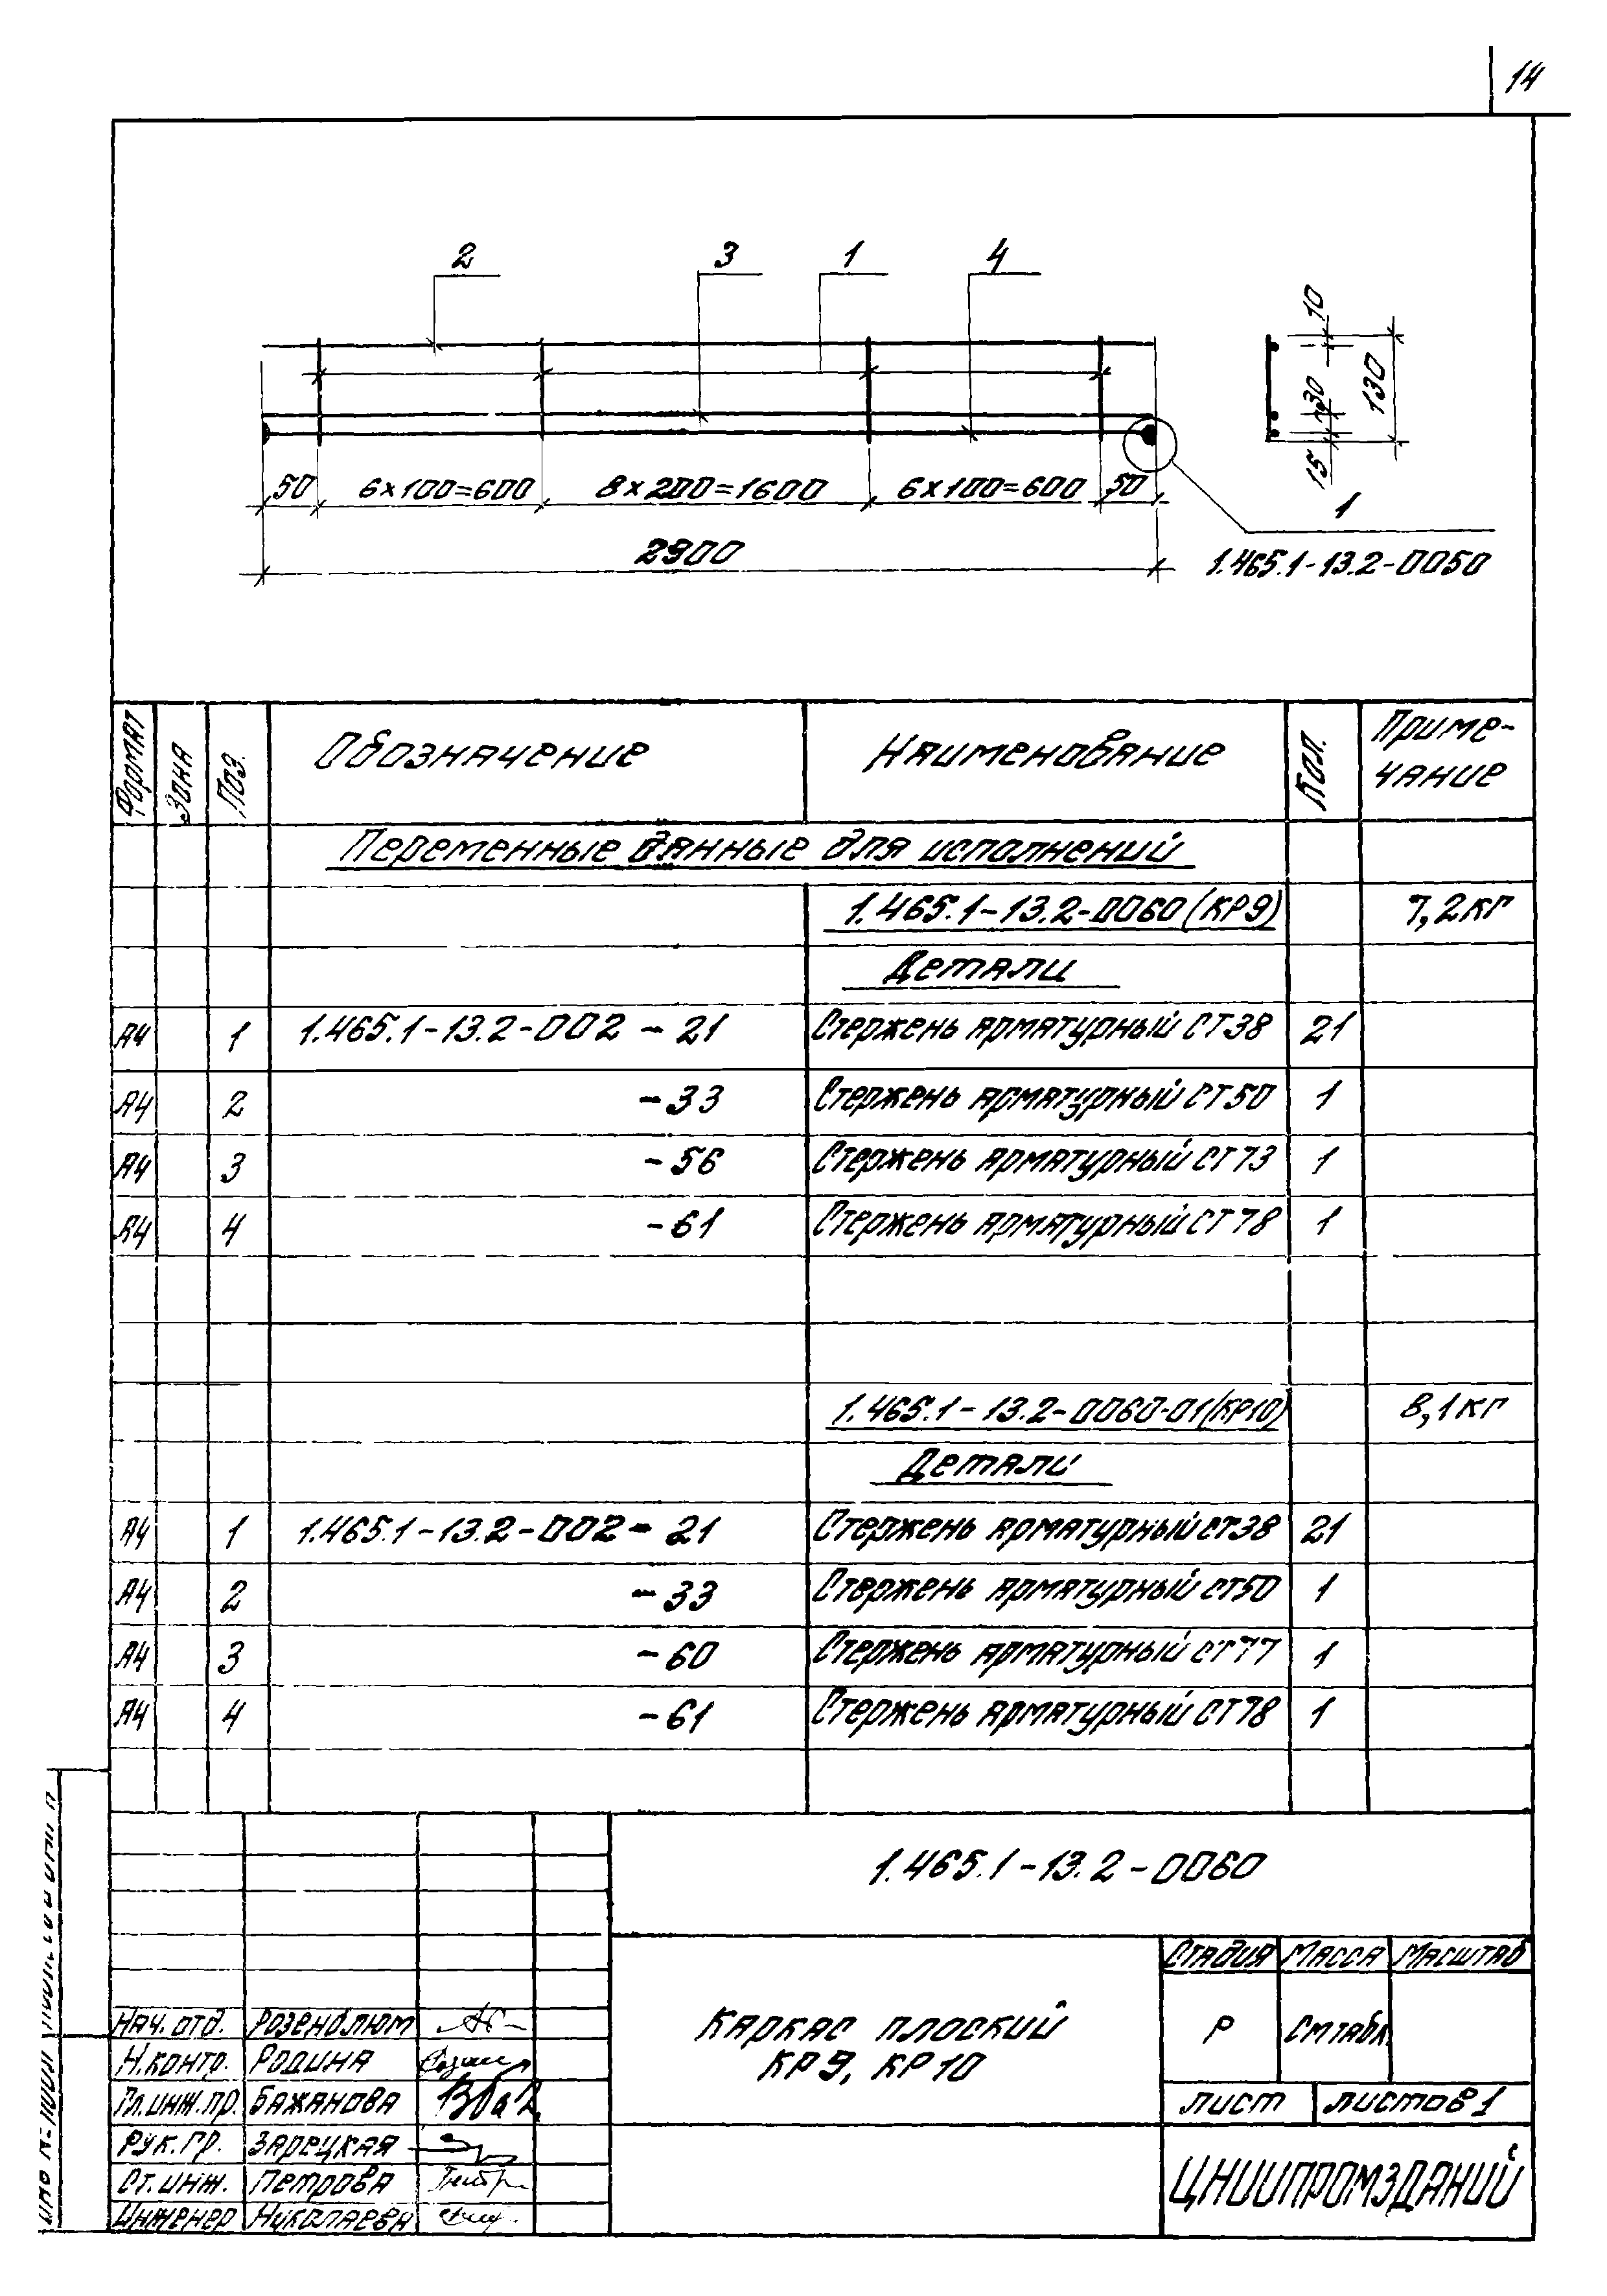 14
2 3 1 4
10
130
30
15
50 6×100=600 8×200=1600 6×100=600 50
2900
1
1.465.1-13.2-0050
Формат Зона Поз. Обозначение Наименование Кол. Приме-
чание
Переменные данные для исполнений
1.465.1-13.2-0060 (КР9) 7,2кг
Детали
А4 1 1.465.1-13.2-002 - 21 Стержень арматурный СТ38 21
А4 2 -33 Стержень арматурный СТ50 1
А4 3 -56 Стержень арматурный СТ73 1
А4 4 -61 Стержень арматурный СТ78 1
1.465.1-13.2-0060-01 (КР10) 8,1кг
Детали
А4 1 1.465.1-13.2-002 - 21 Стержень арматурный СТ38 21
А4 2 -33 Стержень арматурный СТ50 1
А4 3 -60 Стержень арматурный СТ77 1
А4 4 -61 Стержень арматурный СТ78 1
1.465.1-13.2-0060
Стадия Масса Масштаб
Каркас плоский
КР9, КР10
Р См табл.
Лист Листов 1
ЦНИИПРОМЗДАНИЙ
Нач. отд. Розенблюм
Н.контр. Родина
Гл.инж.пр. Бажанова
Рук.гр. Зарецкая
Ст.инж. Петрова
Инженер Николаева